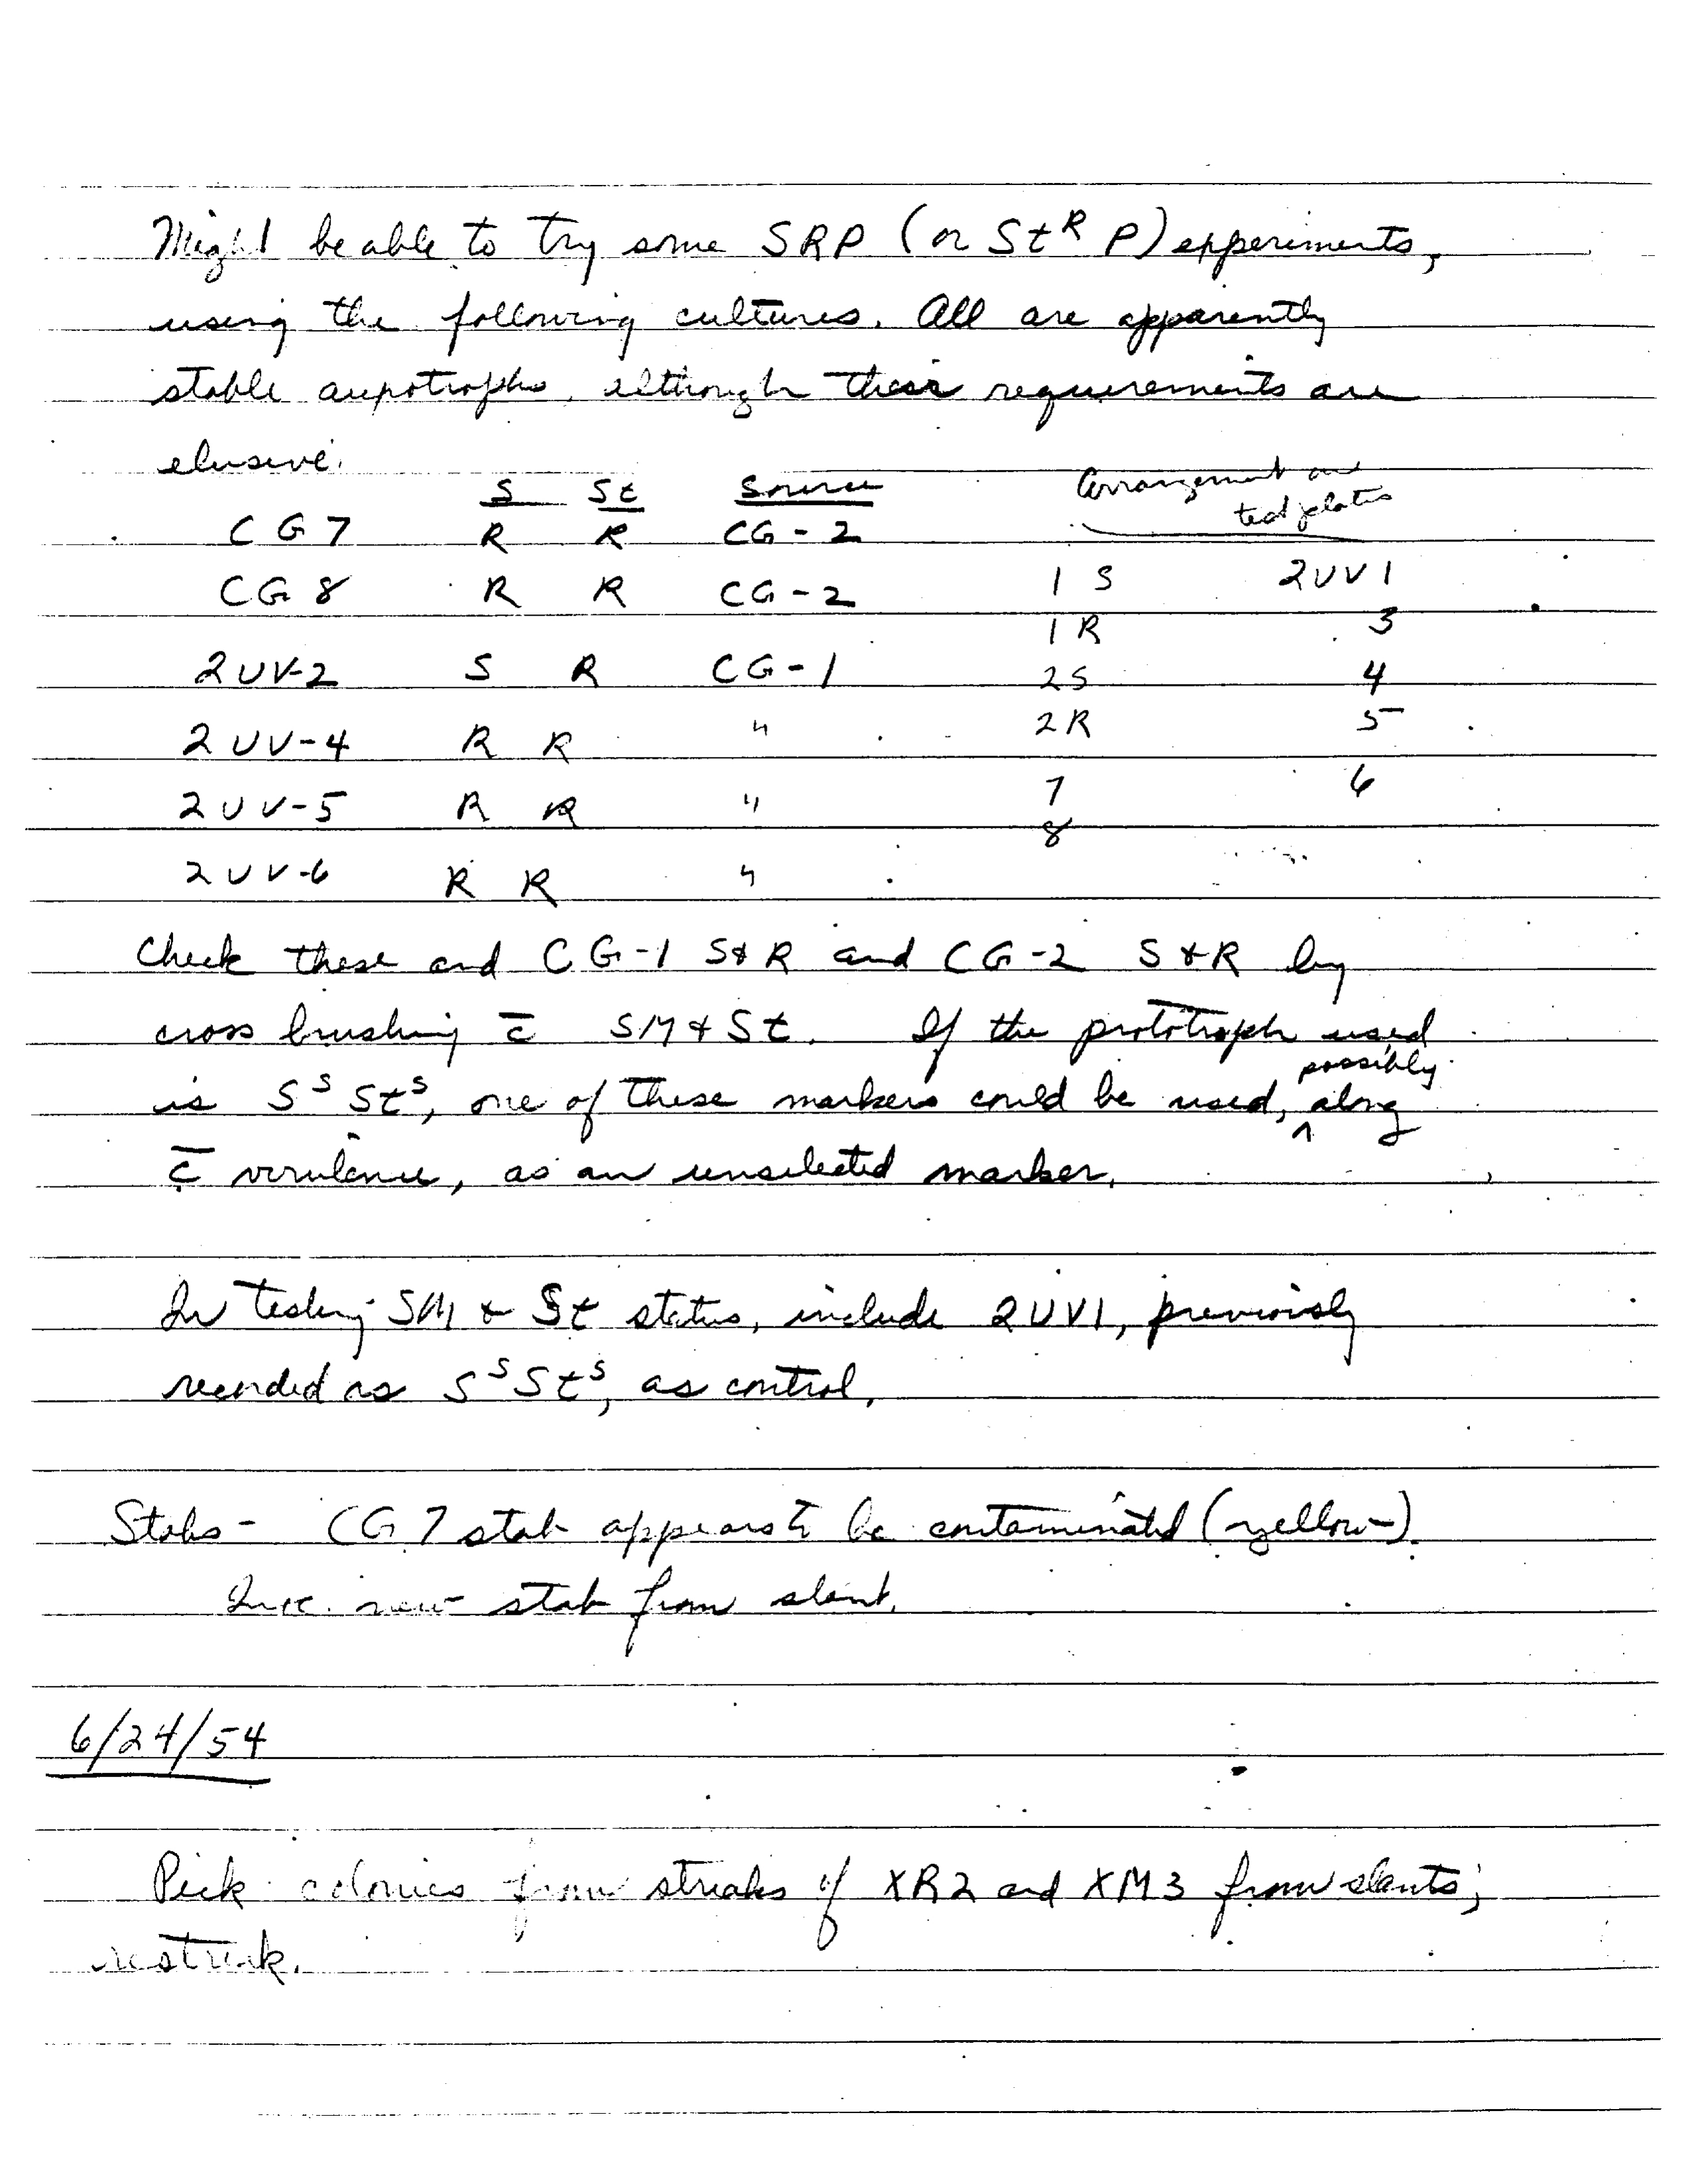 Might be able to try some SRP (or St^R P) experiments,
using the following cultures. All are apparently
stable auxotrophs, although their requirements are
elusive.
S St Source Arrangement on
test plates
CG7 R R CG-2
CG8 R R CG-2 1 S 2UV1
1 R 3
2UV-2 S R CG-1 2S 4
2R 5
2UV-4 R R "
7 6
2UV-5 R R "
8
2UV-6 R R "
Check these and CG-1 S&R and CG-2 S&R by
cross brushing c̄ SM & St. If the prototroph used
is S^S St^S, one of these markers could be used, possibly along
c̄ virulence, as an unselected marker.
In testing SM & St status, include 2UV1, previously
recorded as S^S St^S, as control.
Stabs - CG7 stab appears to be contaminated (yellow)
Inoc. new stab from slant.
6/24/54
Pick colonies from streaks of XR2 and XM3 from slants;
restreak.